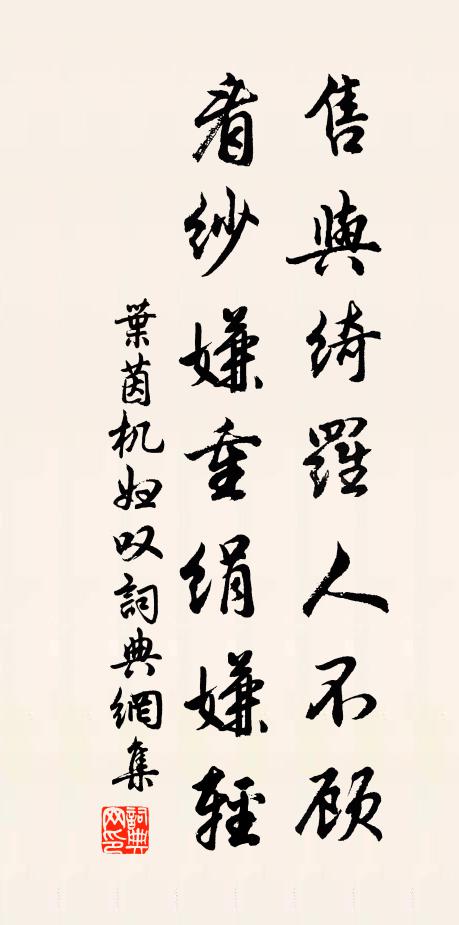 售與綺羅人不顧
看紗嫌重絹嫌輕
葉茵机妇叹詞典網集
詞典网印